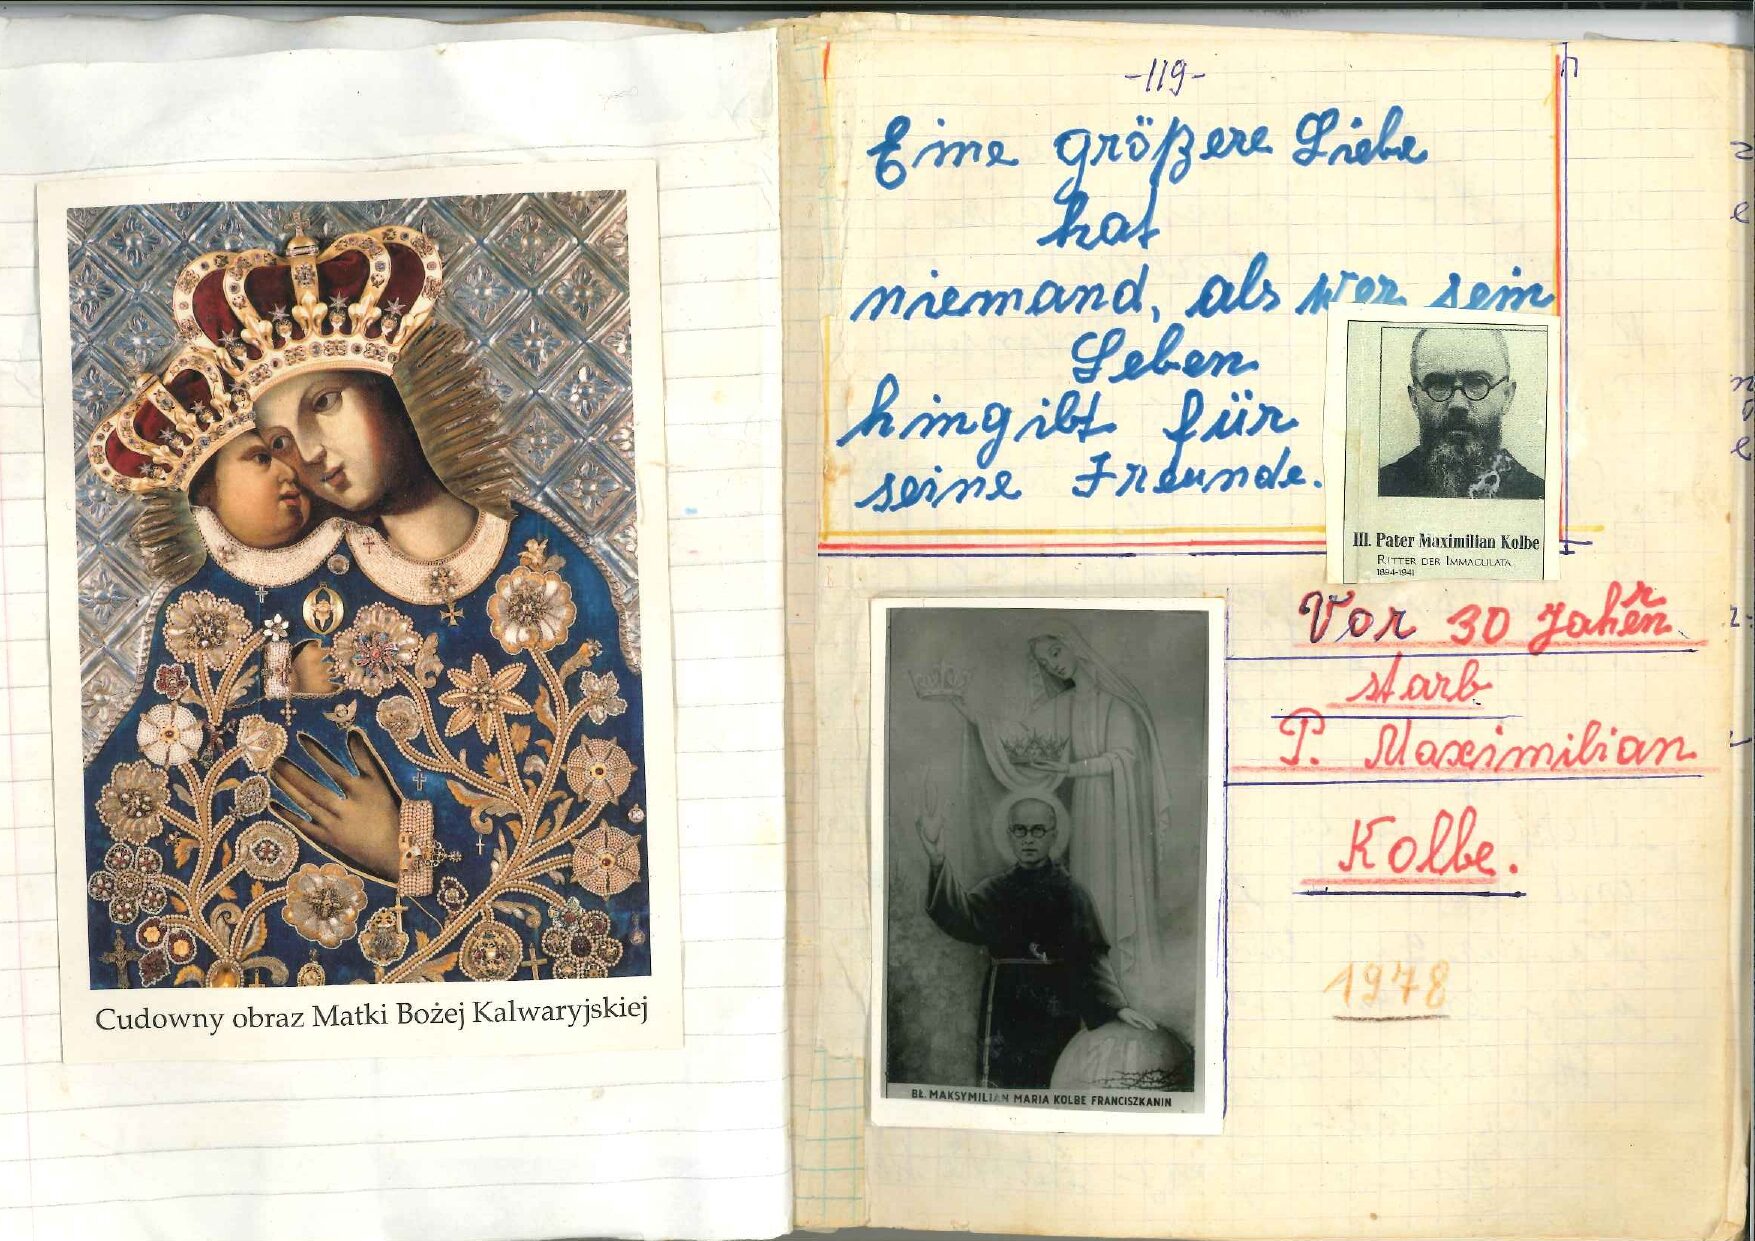 Cudowny obraz Matki Bożej Kalwaryjskiej
-119-
Eine größere Liebe
hat
niemand, als wer sein
Leben
hingibt für
seine Freunde.
III. Pater Maximilian Kolbe
RITTER DER IMMACULATA
1894-1941
Vor 30 Jahren
starb
P. Maximilian
Kolbe.
1978
BŁ. MAKSYMILIAN MARIA KOLBE FRANCISZKANIN